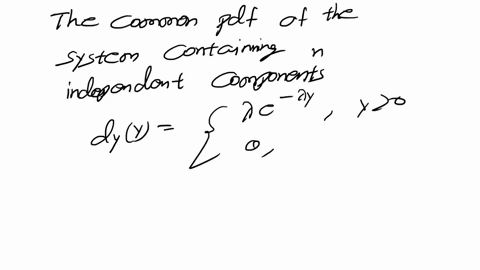 The common pdf of the
system containing n
independent components
dy(y) = { λe^{-λy}, y>0
0,